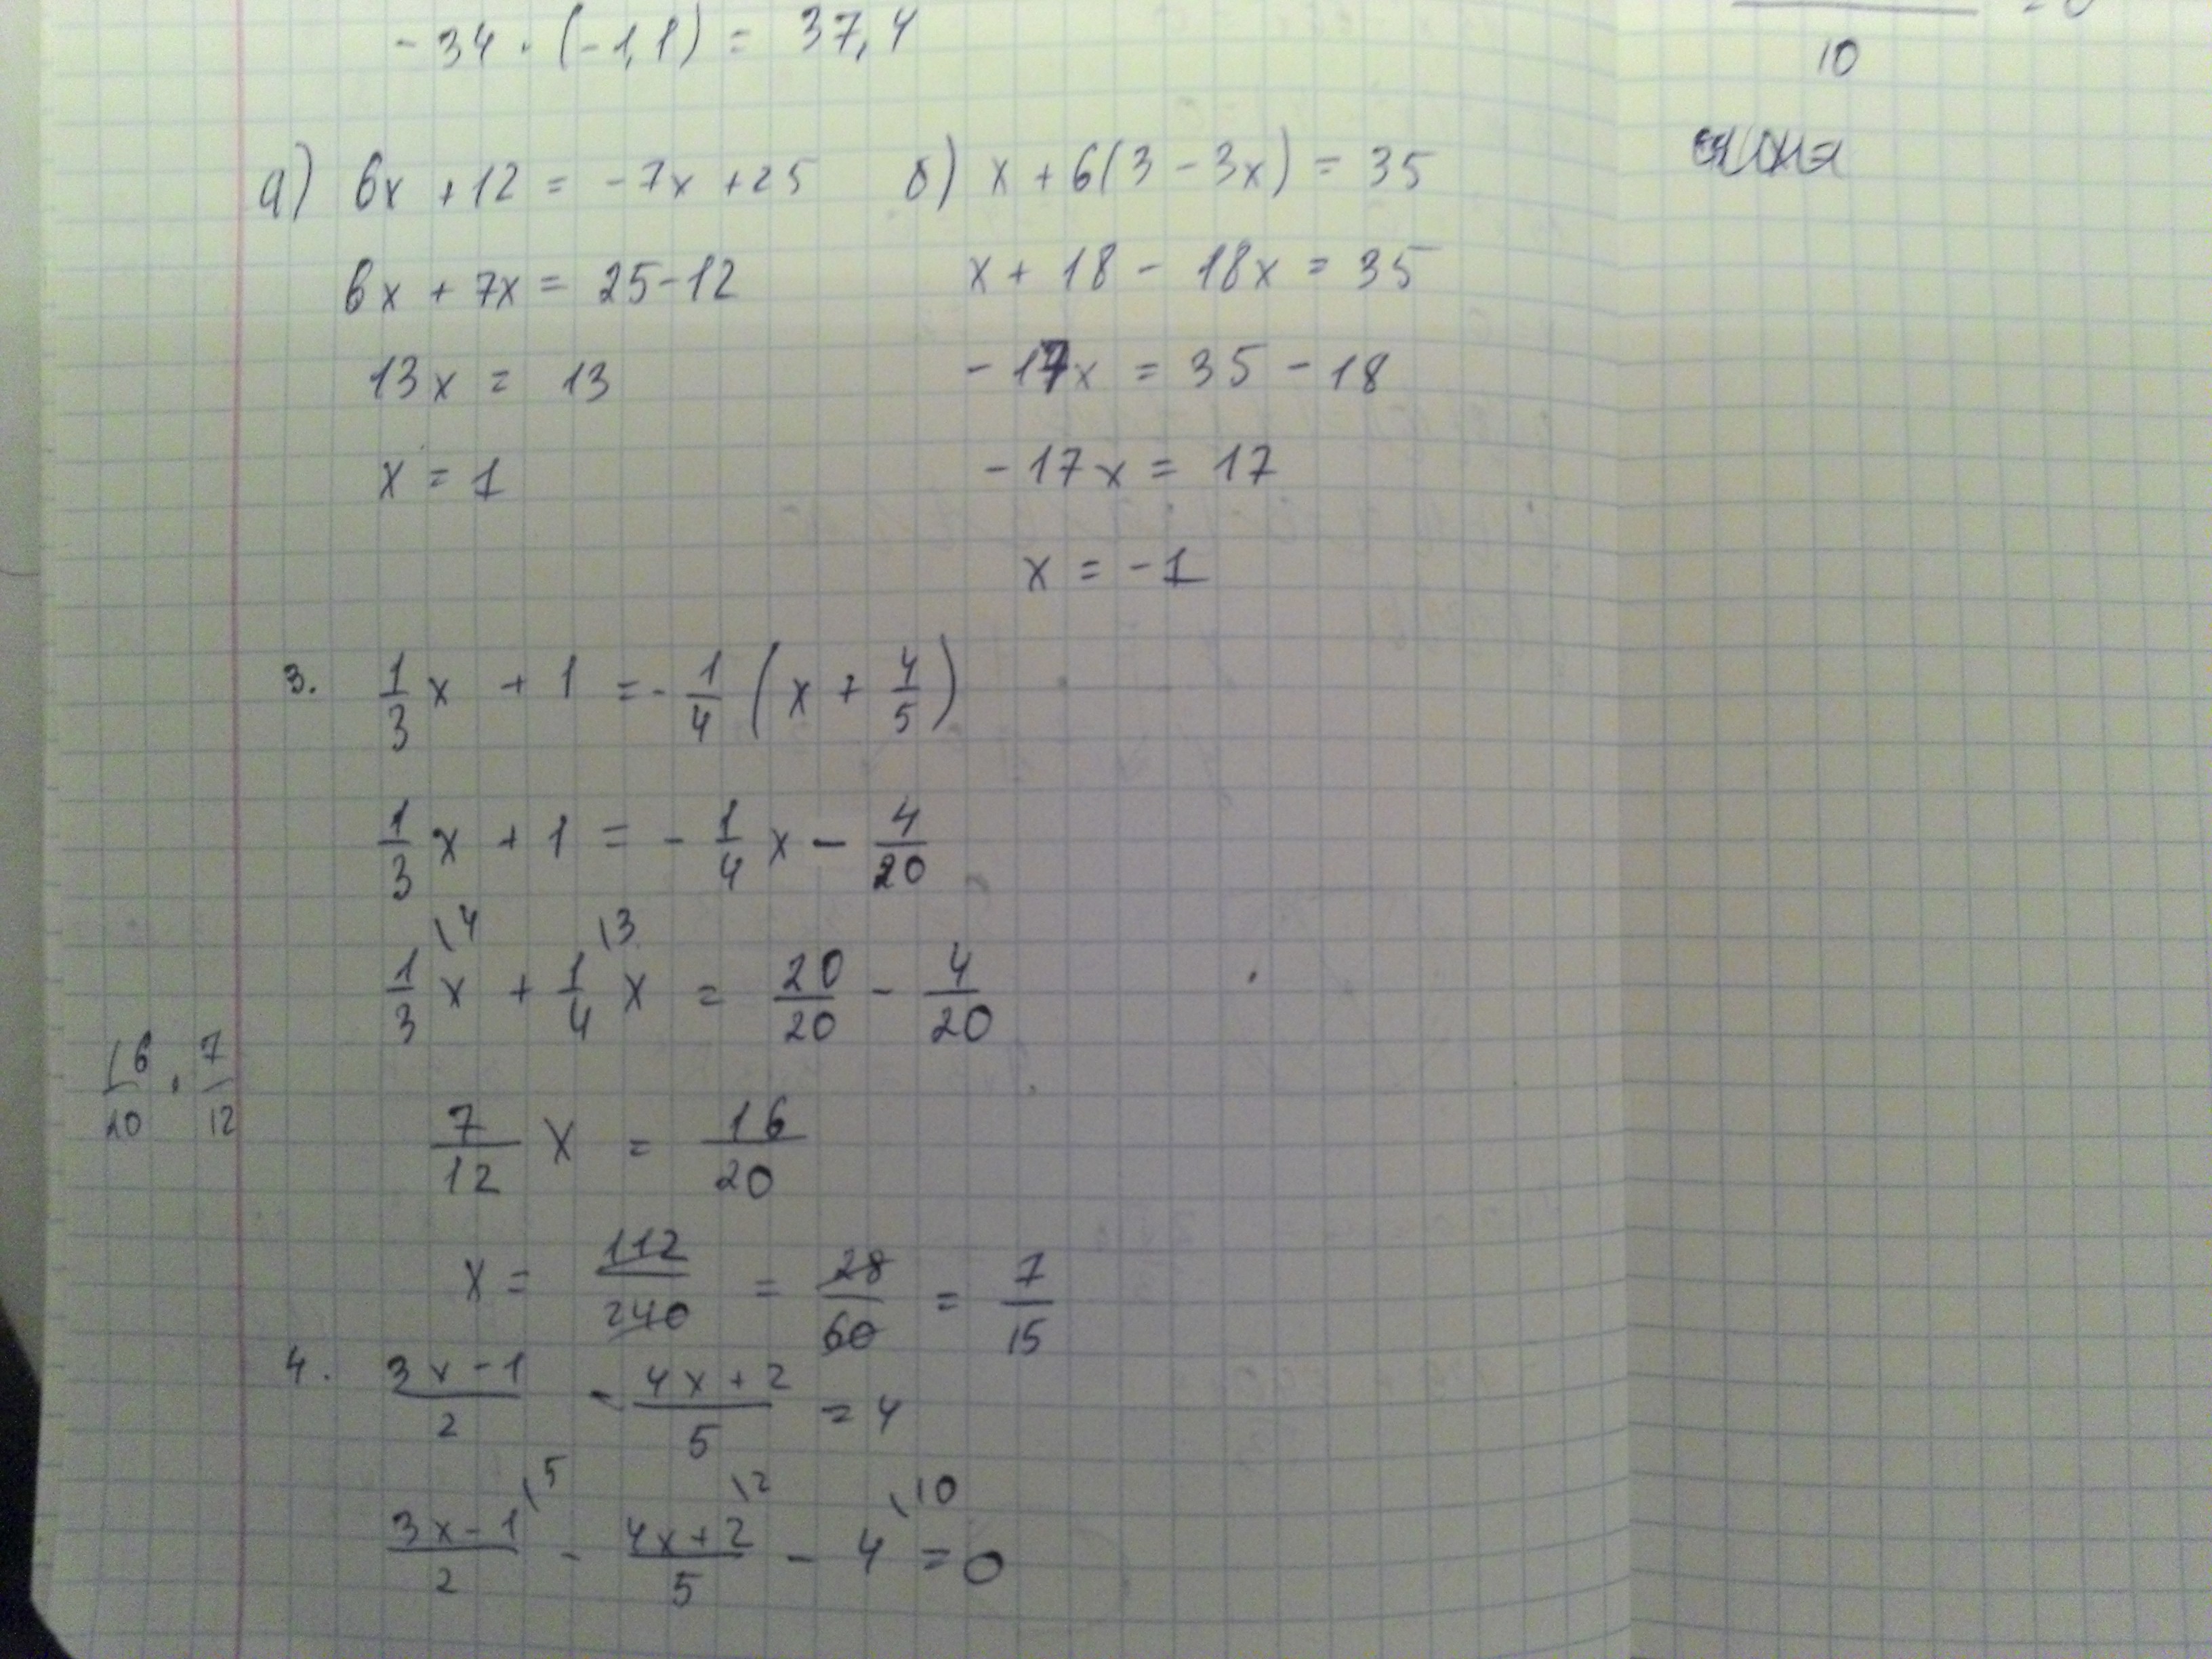 -34 · (-1,1) = 37,4
= 0
10
а) 6x + 12 = -7x + 25
6x + 7x = 25 - 12
13x = 13
x = 1
б) x + 6(3 - 3x) = 35
x + 18 - 18x = 35
-17x = 35 - 18
-17x = 17
x = -1
3. 1/3 x + 1 = - 1/4 (x + 4/5)
1/3 x + 1 = - 1/4 x - 4/20
1/3 x \4 + 1/4 x \3 = 20/20 - 4/20
16/20 · 7/12
7/12 x = 16/20
x = 112/240 = 28/60 = 7/15
4. (3x - 1)/2 - (4x + 2)/5 = 4
(3x - 1)/2 \5 - (4x + 2)/5 \2 - 4 \10 = 0